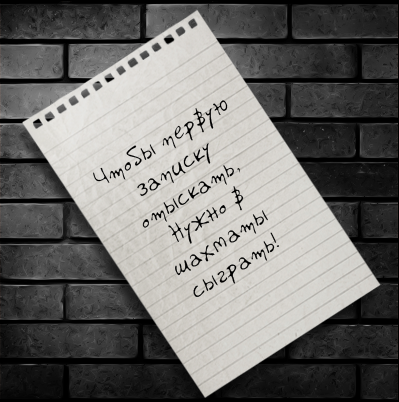 Чтобы первую
записку
отыскать,
Нужно в
шахматы
сыграть!